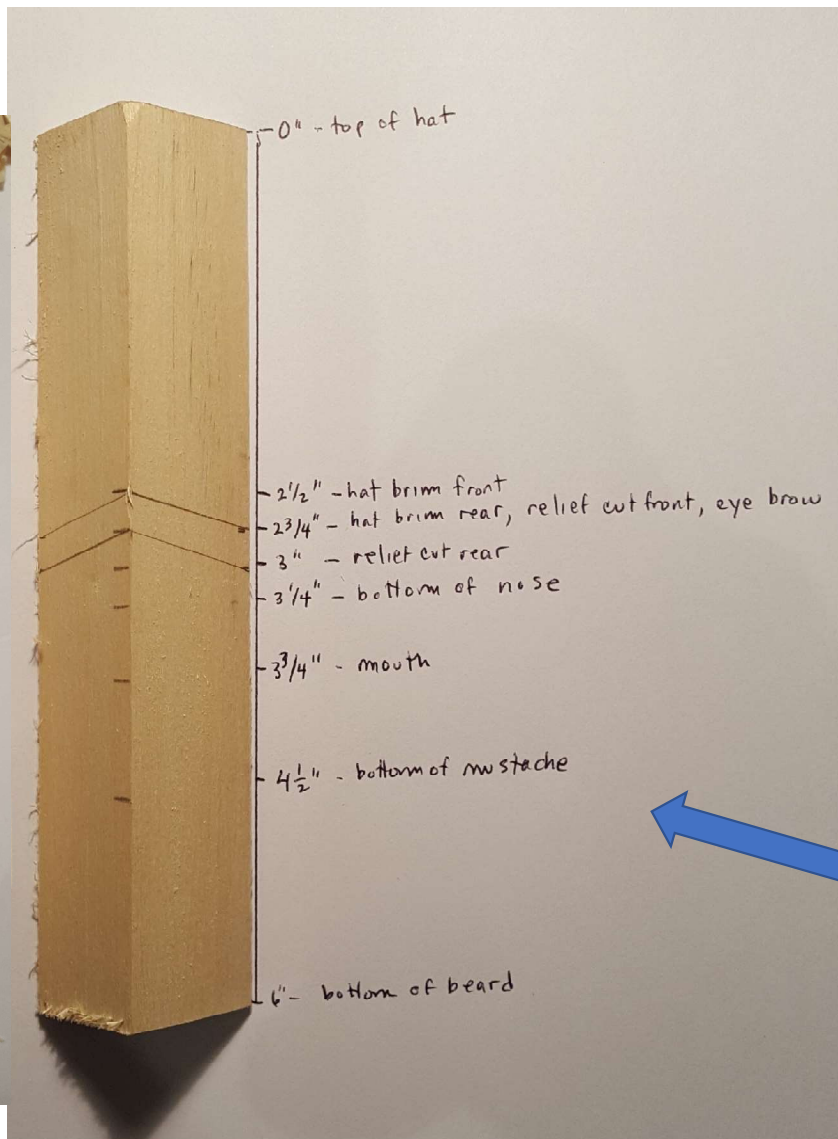 0" - top of hat
2 1/2" - hat brim front
2 3/4" - hat brim rear, relief cut front, eye brow
3" - relief cut rear
3 1/4" - bottom of nose
3 3/4" - mouth
4 1/2" - bottom of mustache
6" - bottom of beard